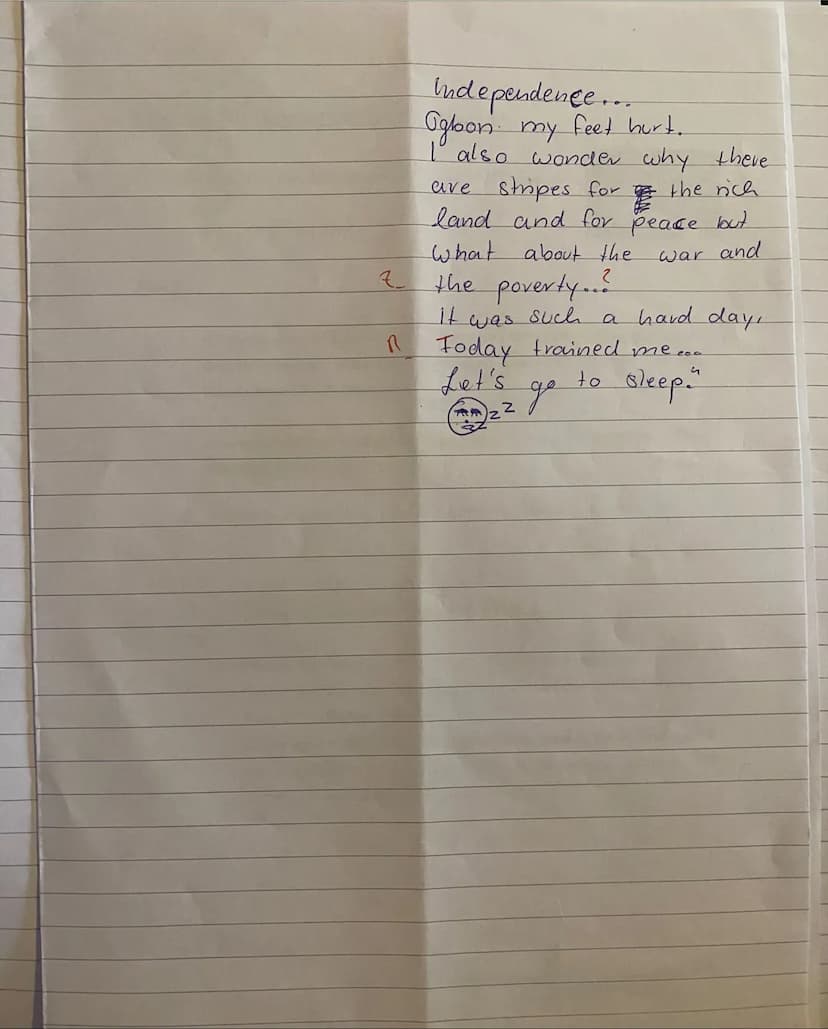 Independence...
Ogbon my feet hurt.
I also wonder why there
are stripes for the rich
land and for peace but
what about the war and
Z the poverty...?
It was such a hard day,
R Today trained me...
Let's go to sleep."
zzz